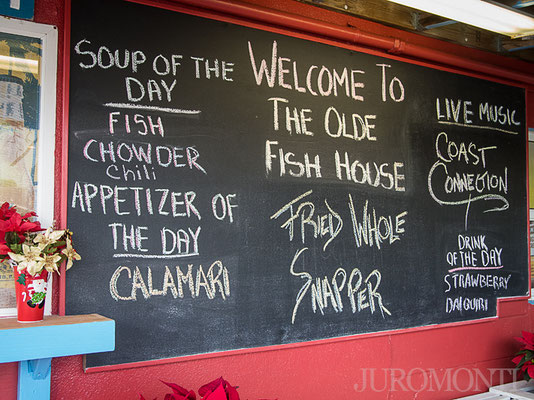 SOUP OF THE
DAY
FISH
CHOWDER
Chili
APPETIZER OF
THE DAY
CALAMARI
WELCOME TO
THE OLDE
FISH HOUSE
FRIED WHOLE
SNAPPER
LIVE MUSIC
COAST
CONNECTION
DRINK
OF THE DAY
STRAWBERRY
DAIQUIRI
JUROMONTI